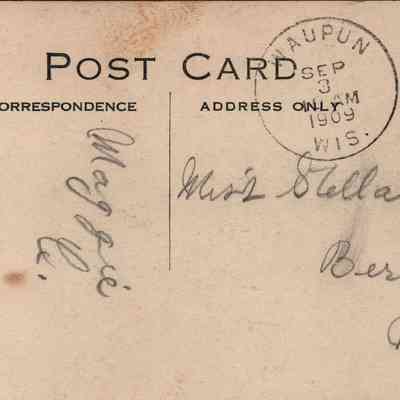 POST CARD
ORRESPONDENCE
ADDRESS ONLY
WAUPUN
SEP
3
AM
1909
WIS.
Maggie
Miss Stella
Ber